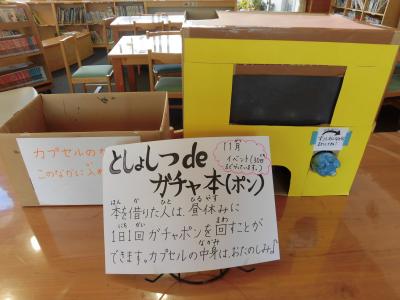 カプセルの
このなかに入
としょしつde
ガチャ本(ポン)
11月
イベント(30日
までやっています。)
本を借りた人は、昼休みに
1日1回ガチャポンを回すことが
できます。カプセルの中身は、おたのしみ♪